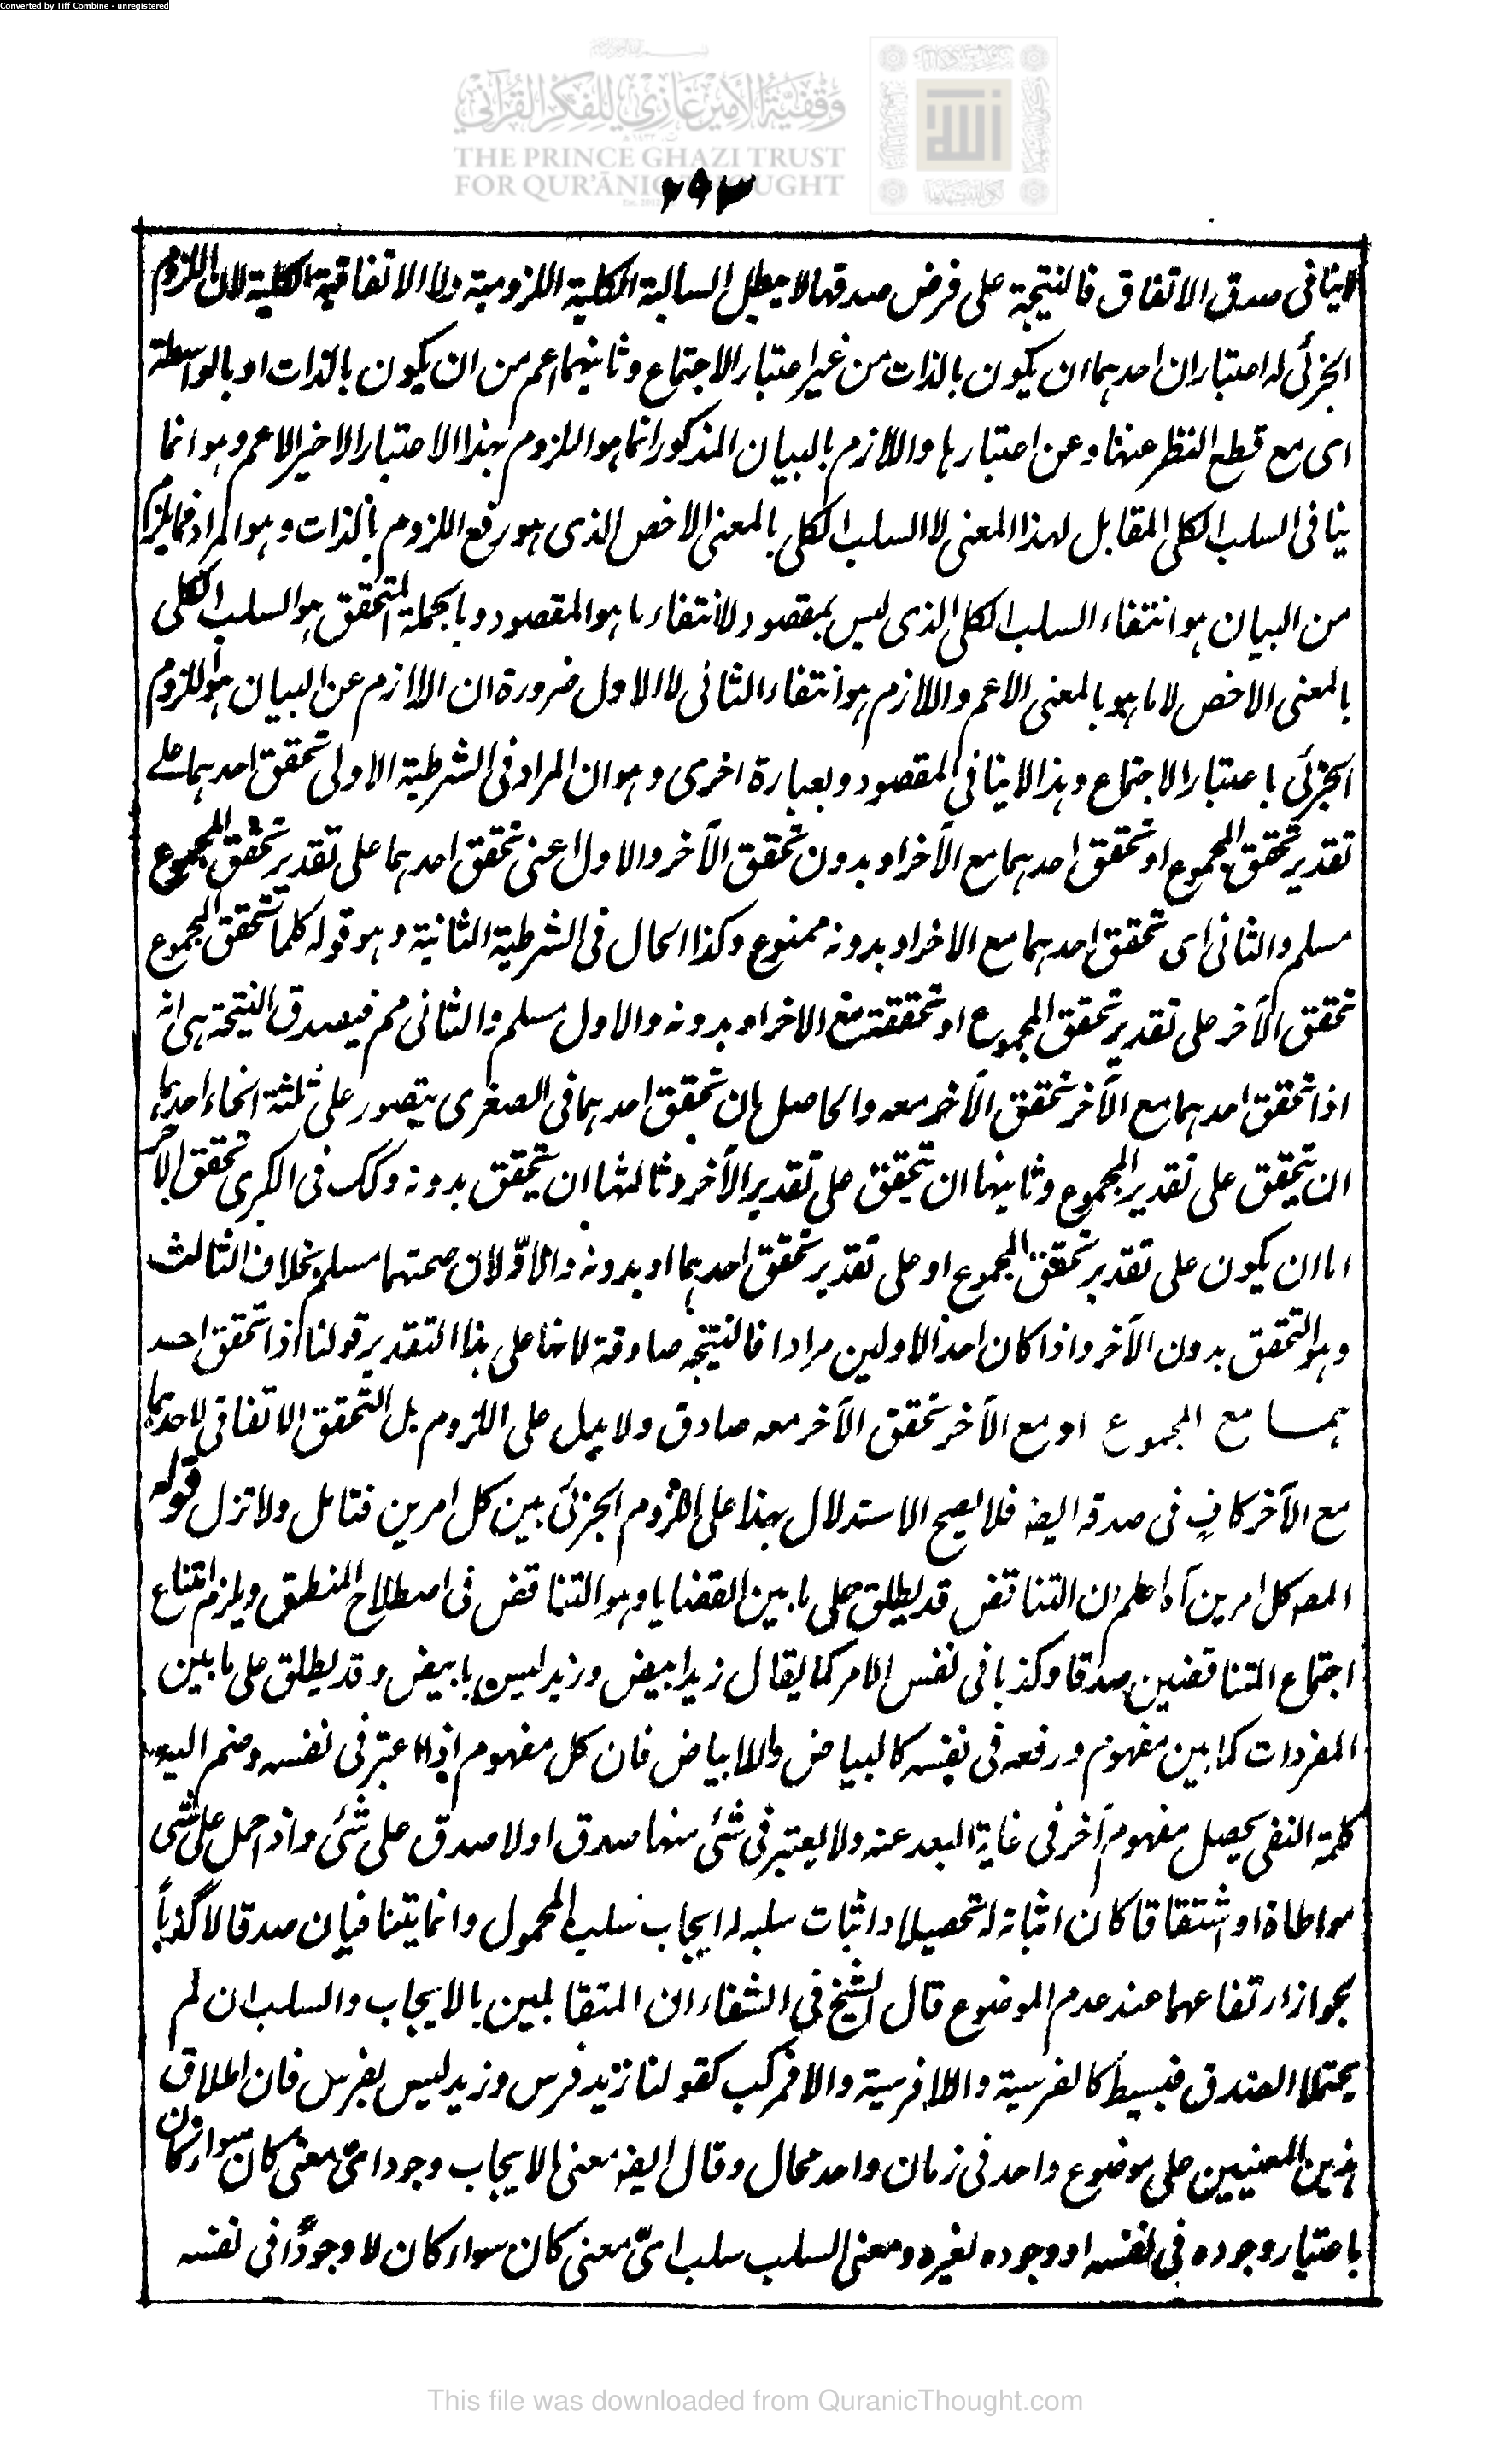 Converted by Tiff Combine - unregistered
وقفية الأمير غازي للفكر القرآني
THE PRINCE GHAZI TRUST
FOR QUR'ĀNIC THOUGHT
٢٩٣
لاينافى صدق الاتفاق فالنتيجة على فرض صدقها لا يبطل السالبة الكلية اللزومية ولا الاتفاقية الكلية لان اللزوم
الجزئى له اعتباران احدهما ان يكون بالذات من غير اعتبار الاجتماع وثانيهما اعم من ان يكون بالذات او بالواسطة
اى مع قطع النظر عنها وعن اعتبارها واللازم بالبيان المذكور انما هو اللزوم بهذا الاعتبار الاخير الاعم وهو انما
ينافى السلب الكلى المقابل لهذا المعنى لا السلب الكلى بالمعنى الاخص الذى هو رفع اللزوم بالذات وهو المراد فما يلزم
من البيان هو انتفاء السلب الكلى الذى ليس بمقصود لا انتفاء ما هو المقصود وبالجملة المتحقق هو السلب الكلى
بالمعنى الاخص لا ما هو بالمعنى الاعم واللازم هو انتفاء الثانى لا الاول ضرورة ان اللازم عن البيان هو اللزوم
الجزئى باعتبار الاجتماع وهذا لا ينافى المقصود وبعبارة اخرى وهو ان المراد فى الشرطية الاولى تحقق احدهما على
تقدير تحقق المجموع او تحقق احدهما مع الآخر او بدون تحقق الآخر والاول اعنى تحقق احدهما على تقدير تحقق المجموع
مسلم والثانى اى تحقق احدهما مع الاخر او بدونه ممنوع وكذا الحال فى الشرطية الثانية وهو قوله كلما تحقق المجموع
تحقق الآخر على تقدير تحقق المجموع او تحققه مع الاخر او بدونه والاول مسلم والثانى مم فيصدق النتيجة هى انه
اذا تحقق احدهما مع الآخر تحقق الآخر معه والحاصل ان تحقق احدهما فى الصغرى يتصور على ثلثة انحاء احدها
ان يتحقق على تقدير المجموع وثانيها ان يتحقق على تقدير الآخر وثالثها ان يتحقق بدونه وكك فى الكبرى تحقق الآخر
اما ان يكون على تقدير تحقق المجموع او على تقدير تحقق احدهما او بدونه والاوّلان صحتهما مسلم بخلاف الثالث
وهو التحقق بدون الآخر واذا كان احد الاولين مرادا فالنتيجة صادقة لانها على هذا التقدير قولنا اذا تحقق احد
هما مع المجموع او مع الآخر تحقق الآخر معه صادق ولا يدل على اللزوم بل التحقق الاتفاقى لاحدهما
مع الآخر كافٍ فى صدقه ايضا فلا يصح الاستدلال بهذا على اللزوم الجزئى بين كل امرين فتامل ولا تزل قوله
المصـ كل امرين آه اعلم ان التناقض قد يطلق على ما بين القضايا وهو التناقض فى اصطلاح المنطق ويلزم امتناع
اجتماع المتناقضين صدقا وكذبا فى نفس الامر كما يقال زيد ابيض وزيد ليس بابيض وقد يطلق على ما بين
المفردات كما بين مفهوم ورفعه فى نفسه كالبياض واللابياض فان كل مفهوم اذا اعتبر فى نفسه وضم اليه
كلمة النفى يحصل مفهوم آخر فى غاية البعد عنه ولا يعتبر فى شئ منهما صدق او لا صدق على شئ واذا حمل على شئ
مواطاة او اشتقاقا كان اثباته له تحصيلا واثبات سلبه له ايجاب سلب المحمول وانما يتنافيان صدقا لا كذباً
لجواز ارتفاعهما عند عدم الموضوع قال الشيخ فى الشفاء ان المتقابلين بالايجاب والسلب ان لم
يحتملا الصدق فبسيط كالفرسية واللافرسية والا فمركب كقولنا زيد فرس وزيد ليس بفرس فان اطلاق
هذين المعنيين على موضوع واحد فى زمان واحد محال وقال ايضا معنى الايجاب وجود اىّ معنى كان سواء كان
باعتبار وجوده فى نفسه او وجوده لغيره ومعنى السلب سلب اىّ معنى كان سواء كان لا وجودًا فى نفسه
This file was downloaded from QuranicThought.com